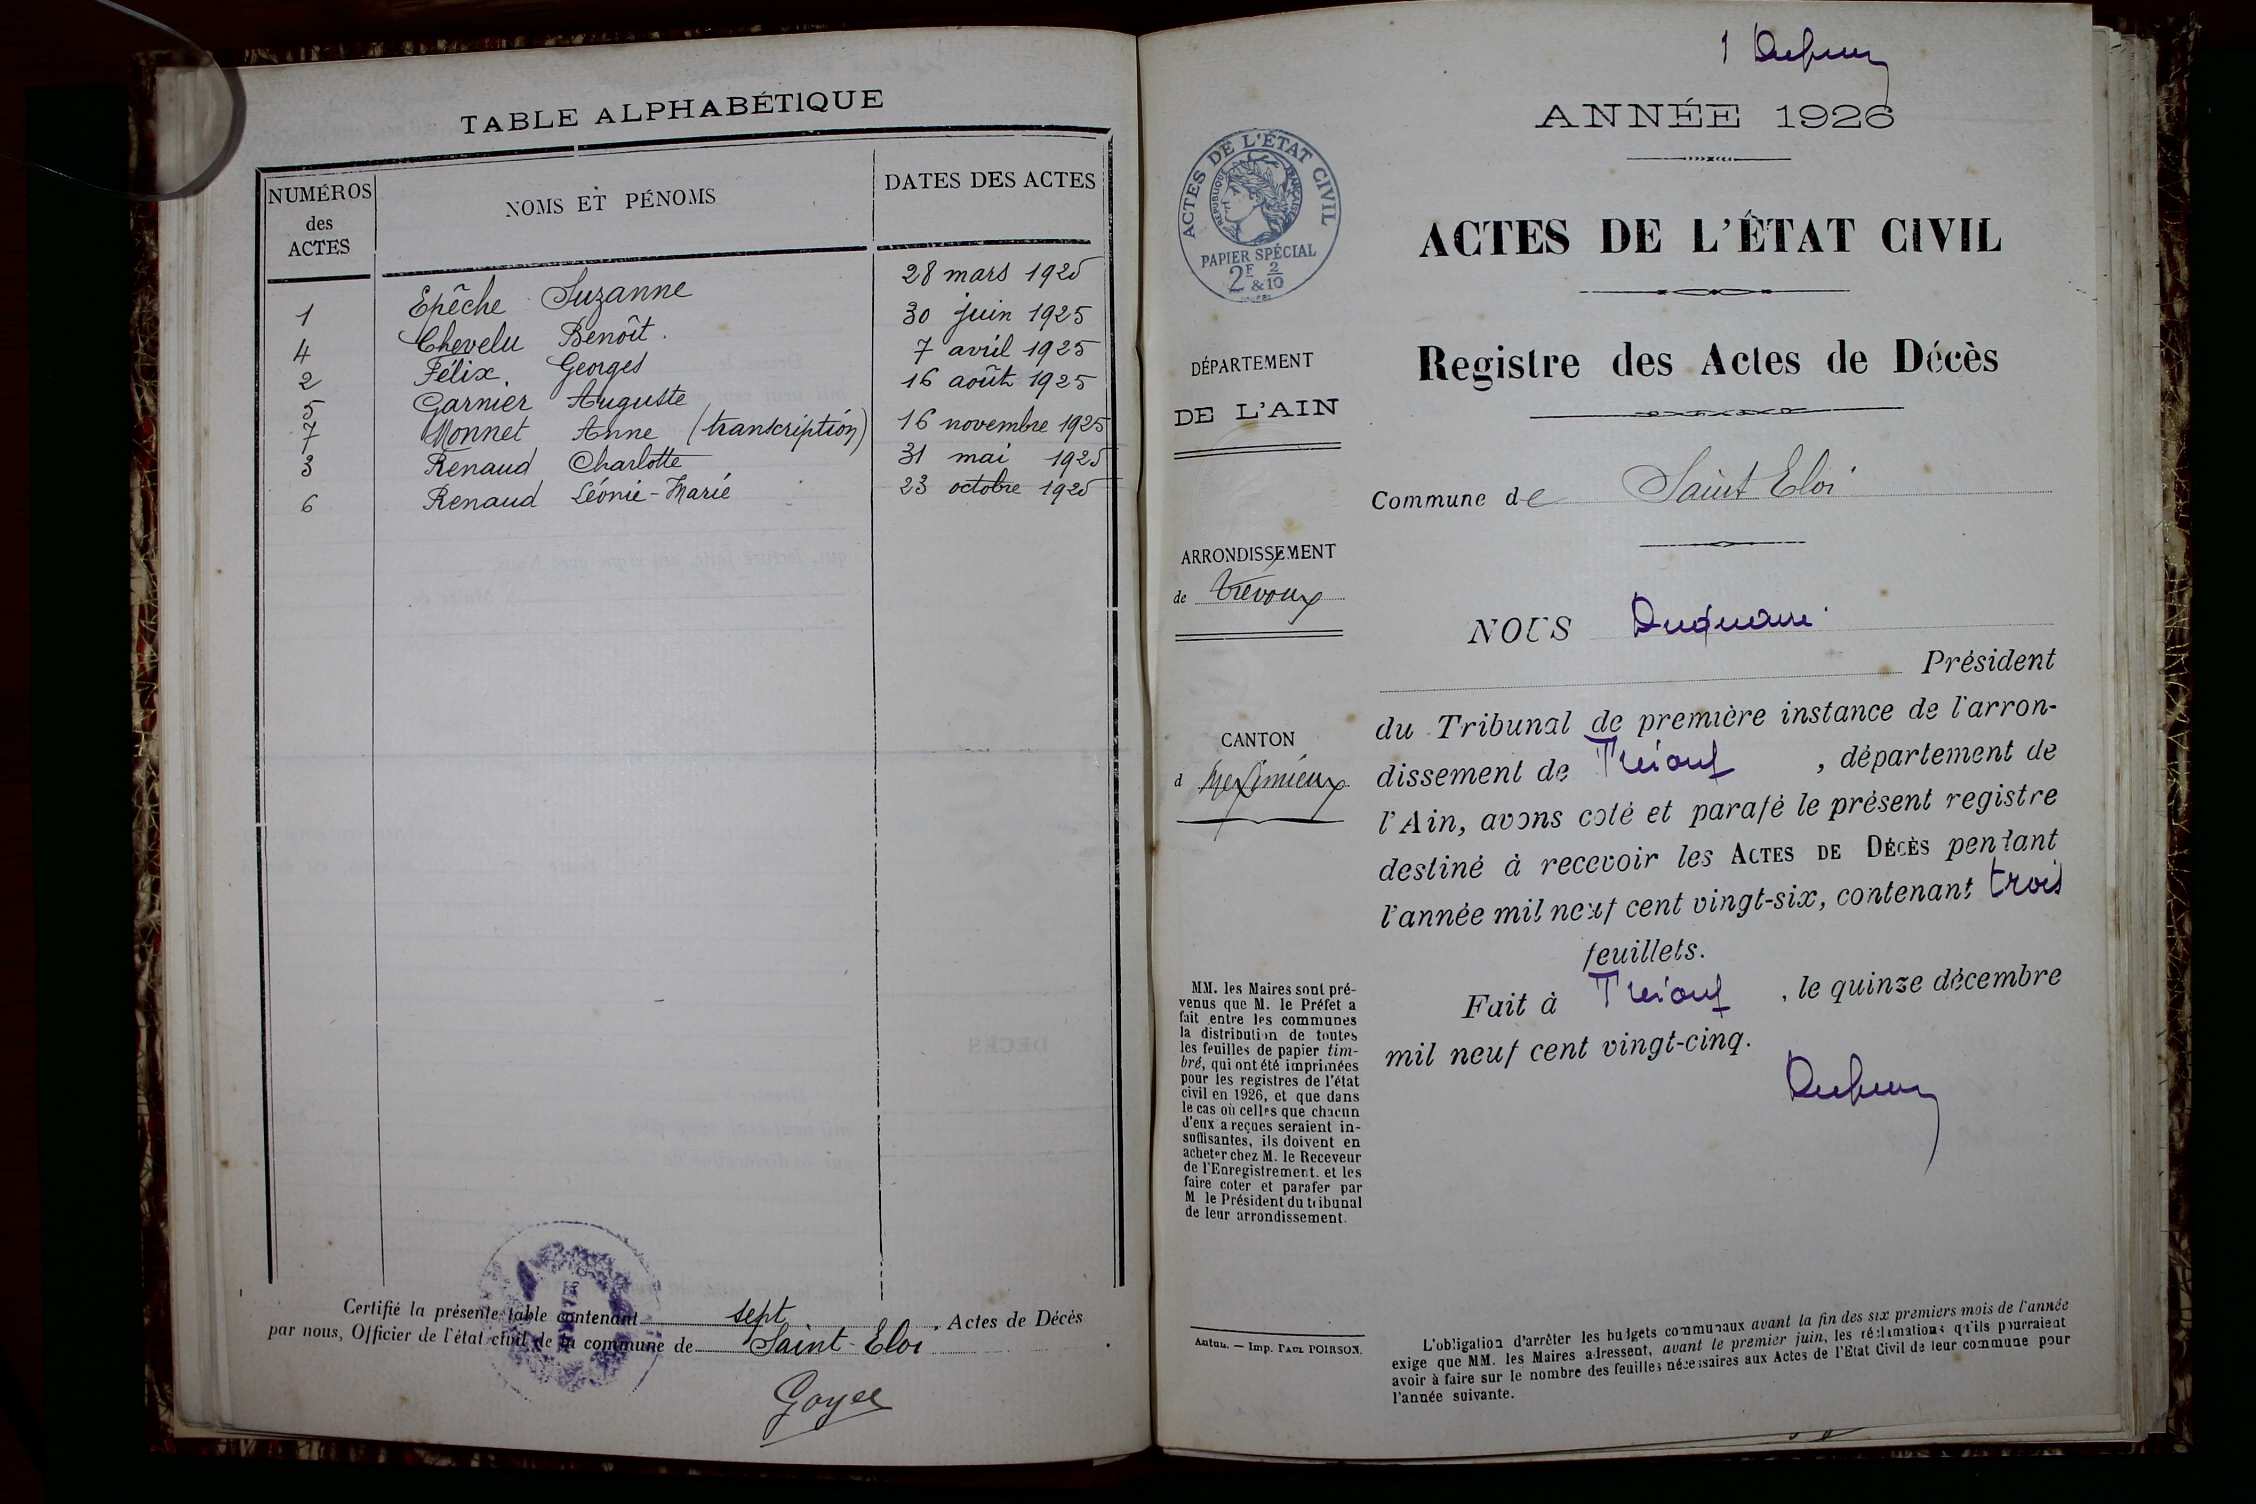 TABLE ALPHABÉTIQUE
NUMÉROS des ACTES NOMS ET PÉNOMS DATES DES ACTES
1 Epêche Suzanne 28 mars 1925
4 Chevelu Benoît. 30 juin 1925
2 Félix. Georges 7 avril 1925
5 Garnier Auguste 16 août 1925
7 Monnet Anne (transcription) 16 novembre 1925
3 Renaud Charlotte 31 mai 1925
6 Renaud Léonie-Marie 23 octobre 1925
Certifié la présente table contenant sept Actes de Décès
par nous, Officier de l'état civil de la commune de Saint-Eloi
Goyer
1
ANNÉE 1926
ACTES DE L'ÉTAT CIVIL
RÉPUBLIQUE FRANÇAISE
PAPIER SPÉCIAL
2F & 2/10
ACTES DE L'ÉTAT CIVIL
Registre des Actes de Décès
DÉPARTEMENT
DE L'AIN
Commune de Saint Eloi
ARRONDISSEMENT
de Trévoux
NOUS
Président
du Tribunal de première instance de l'arron-
dissement de Trévoux, département de
l'Ain, avons coté et parafé le présent registre
destiné à recevoir les ACTES DE DÉCÈS pendant
l'année mil neuf cent vingt-six, contenant trois
feuillets.
Fait à Trévoux, le quinze décembre
mil neuf cent vingt-cinq.
CANTON
d Meximieux
MM. les Maires sont pré-
venus que M. le Préfet a
fait entre les communes
la distribution de toutes
les feuilles de papier tim-
bré, qui ont été imprimées
pour les registres de l'état
civil en 1926, et que dans
le cas où celles que chacun
d'eux a reçues seraient in-
suffisantes, ils doivent en
acheter chez M. le Receveur
de l'Enregistrement. et les
faire coter et parafer par
M le Président du tribunal
de leur arrondissement.
Autun. — Imp. PAUL POIRSON.
L'obligation d'arrêter les budgets communaux avant la fin des six premiers mois de l'année
exige que MM. les Maires adressent, avant le premier juin, les réclamations qu'ils pourraient
avoir à faire sur le nombre des feuilles nécessaires aux Actes de l'Etat Civil de leur commune pour
l'année suivante.